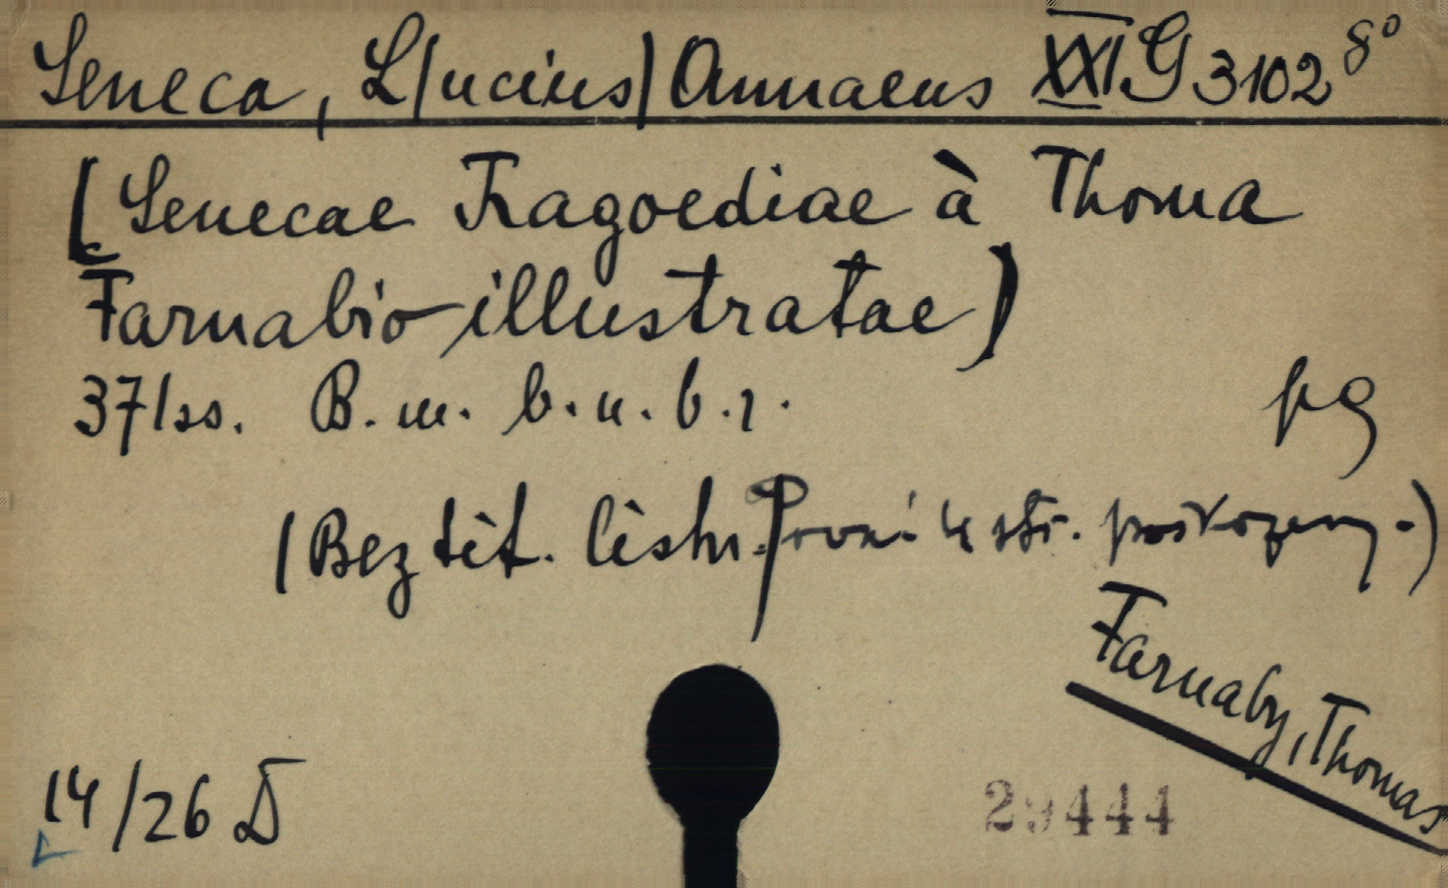 Seneca, L/ucius/ Annaeus XXI G 3102 8°
[Senecae Tragoediae à Thoma
Farnabio illustratae)
371 ss. B. m. b. n. b. r.
pg
/Bez tit. listu. První 4 str. poškozeny.)
Farnaby, Thomas
14/26 D
29444